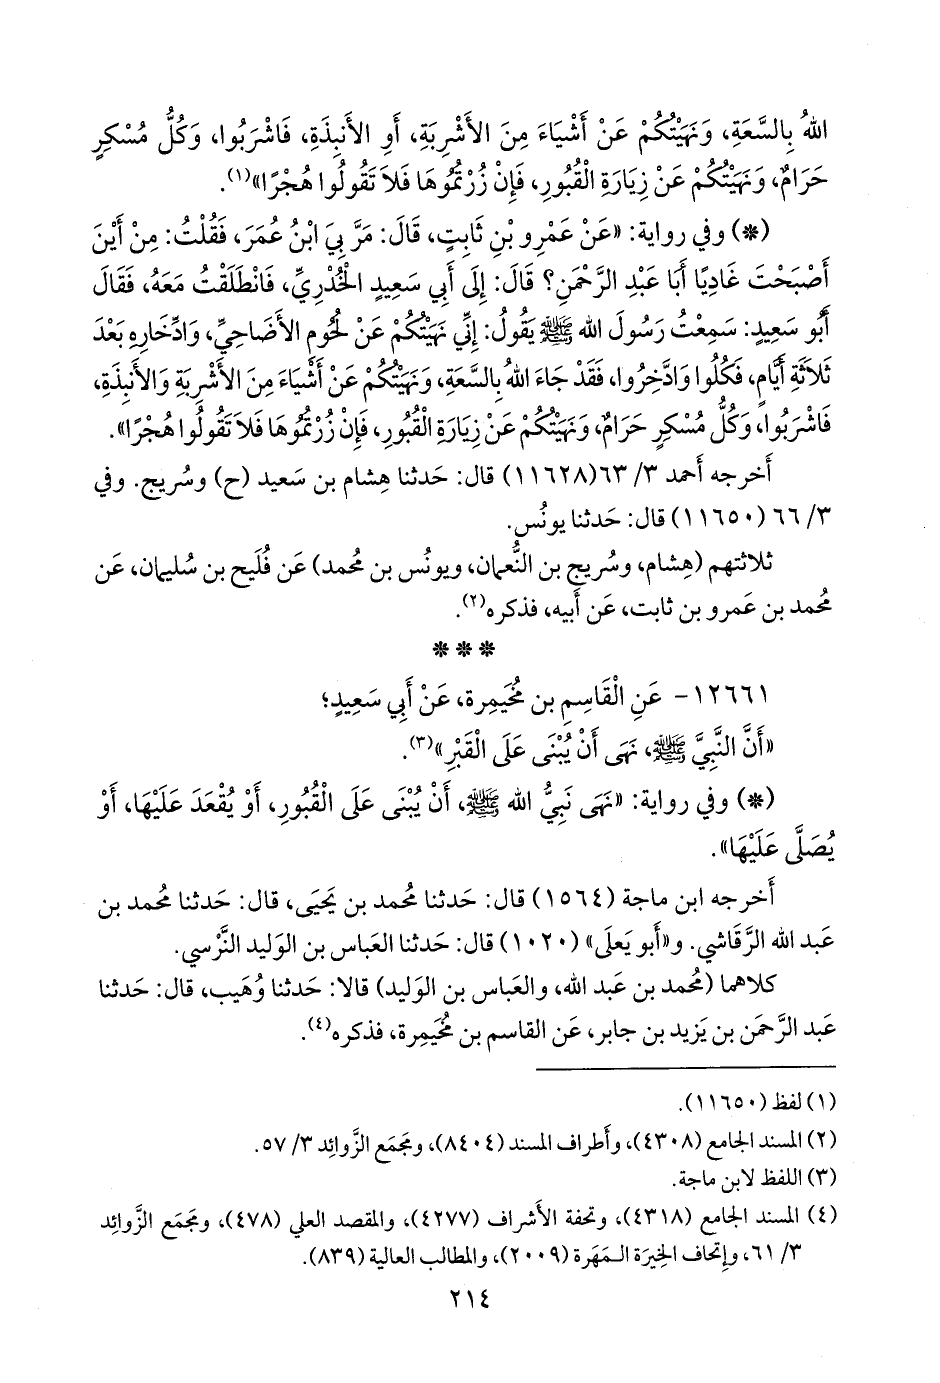 اللهُ بِالسَّعَةِ، وَنَهَيْتُكُمْ عَنْ أَشْيَاءَ مِنَ الأَشْرِبَةِ، أَوِ الأَنبِذَةِ، فَاشْرَبُوا، وَكُلُّ مُسْكِرٍ
حَرَامٌ، وَنَهَيْتُكُمْ عَنْ زِيَارَةِ الْقُبُورِ، فَإِنْ زُرْتُمُوهَا فَلاَ تَقُولُوا هُجْرًا»(١).
(*) وفي رواية: «عَنْ عَمْرِو بْنِ ثَابِتٍ، قَالَ: مَرَّ بِيَ ابْنُ عُمَرَ، فَقُلْتُ: مِنْ أَيْنَ
أَصْبَحْتَ غَادِيًا أَبَا عَبْدِ الرَّحْمَنِ؟ قَالَ: إِلَى أَبِي سَعِيدٍ الْخُدْرِيِّ، فَانْطَلَقْتُ مَعَهُ، فَقَالَ
أَبُو سَعِيدٍ: سَمِعْتُ رَسُولَ الله ﷺ يَقُولُ: إِنِّي نَهَيْتُكُمْ عَنْ لُحُومِ الأَضَاحِيِّ، وَادِّخَارِهِ بَعْدَ
ثَلاَثَةِ أَيَّامٍ، فَكُلُوا وَادَّخِرُوا، فَقَدْ جَاءَ اللهُ بِالسَّعَةِ، وَنَهَيْتُكُمْ عَنْ أَشْيَاءَ مِنَ الأَشْرِبَةِ وَالأَنبِذَةِ،
فَاشْرَبُوا، وَكُلُّ مُسْكِرٍ حَرَامٌ، وَنَهَيْتُكُمْ عَنْ زِيَارَةِ الْقُبُورِ، فَإِنْ زُرْتُمُوهَا فَلاَ تَقُولُوا هُجْرًا».
أَخرجه أَحمد ٣/ ٦٣ (١١٦٢٨) قال: حَدثنا هِشام بن سَعيد (ح) وسُريج. وفي
٣/ ٦٦ (١١٦٥٠) قال: حَدثنا يونُس.
ثلاثتهم (هِشام، وسُريج بن النُّعمان، ويونُس بن مُحمد) عَن فُلَيح بن سُليمان، عَن
مُحمد بن عَمرو بن ثابت، عَن أَبيه، فذكره(٢).
* * *
١٢٦٦١- عَنِ الْقَاسِمِ بن مُخَيمِرة، عَنْ أَبِي سَعِيدٍ؛
«أَنَّ النَّبِيَّ ﷺ، نَهَى أَنْ يُبْنَى عَلَى الْقَبْرِ»(٣).
(*) وفي رواية: «نَهَى نَبِيُّ الله ﷺ، أَنْ يُبْنَى عَلَى الْقُبُورِ، أَوْ يُقْعَدَ عَلَيْهَا، أَوْ
يُصَلَّى عَلَيْهَا».
أَخرجه ابن ماجة (١٥٦٤) قال: حَدثنا مُحمد بن يَحيَى، قال: حَدثنا مُحمد بن
عَبد الله الرَّقَاشي. و«أَبو يَعلَى» (١٠٢٠) قال: حَدثنا العَباس بن الوَليد النَّرْسي.
كلاهما (مُحمد بن عَبد الله، والعَباس بن الوَليد) قالا: حَدثنا وُهَيب، قال: حَدثنا
عَبد الرَّحمَن بن يَزيد بن جابر، عَن القاسم بن مُخَيمِرة، فذكره(٤).
(١) لفظ (١١٦٥٠).
(٢) المسند الجامع (٤٣٠٨)، وأَطراف المسند (٨٤٠٤)، ومَجمَع الزَّوائِد ٣/ ٥٧.
(٣) اللفظ لابن ماجة.
(٤) المسند الجامع (٤٣١٨)، وتحفة الأَشراف (٤٢٧٧)، والمقصد العلي (٤٧٨)، ومَجمَع الزَّوائِد
٣/ ٦١، وإِتحاف الخِيرَة المَهَرة (٢٠٠٩)، والمطالب العالية (٨٣٩).
٢١٤